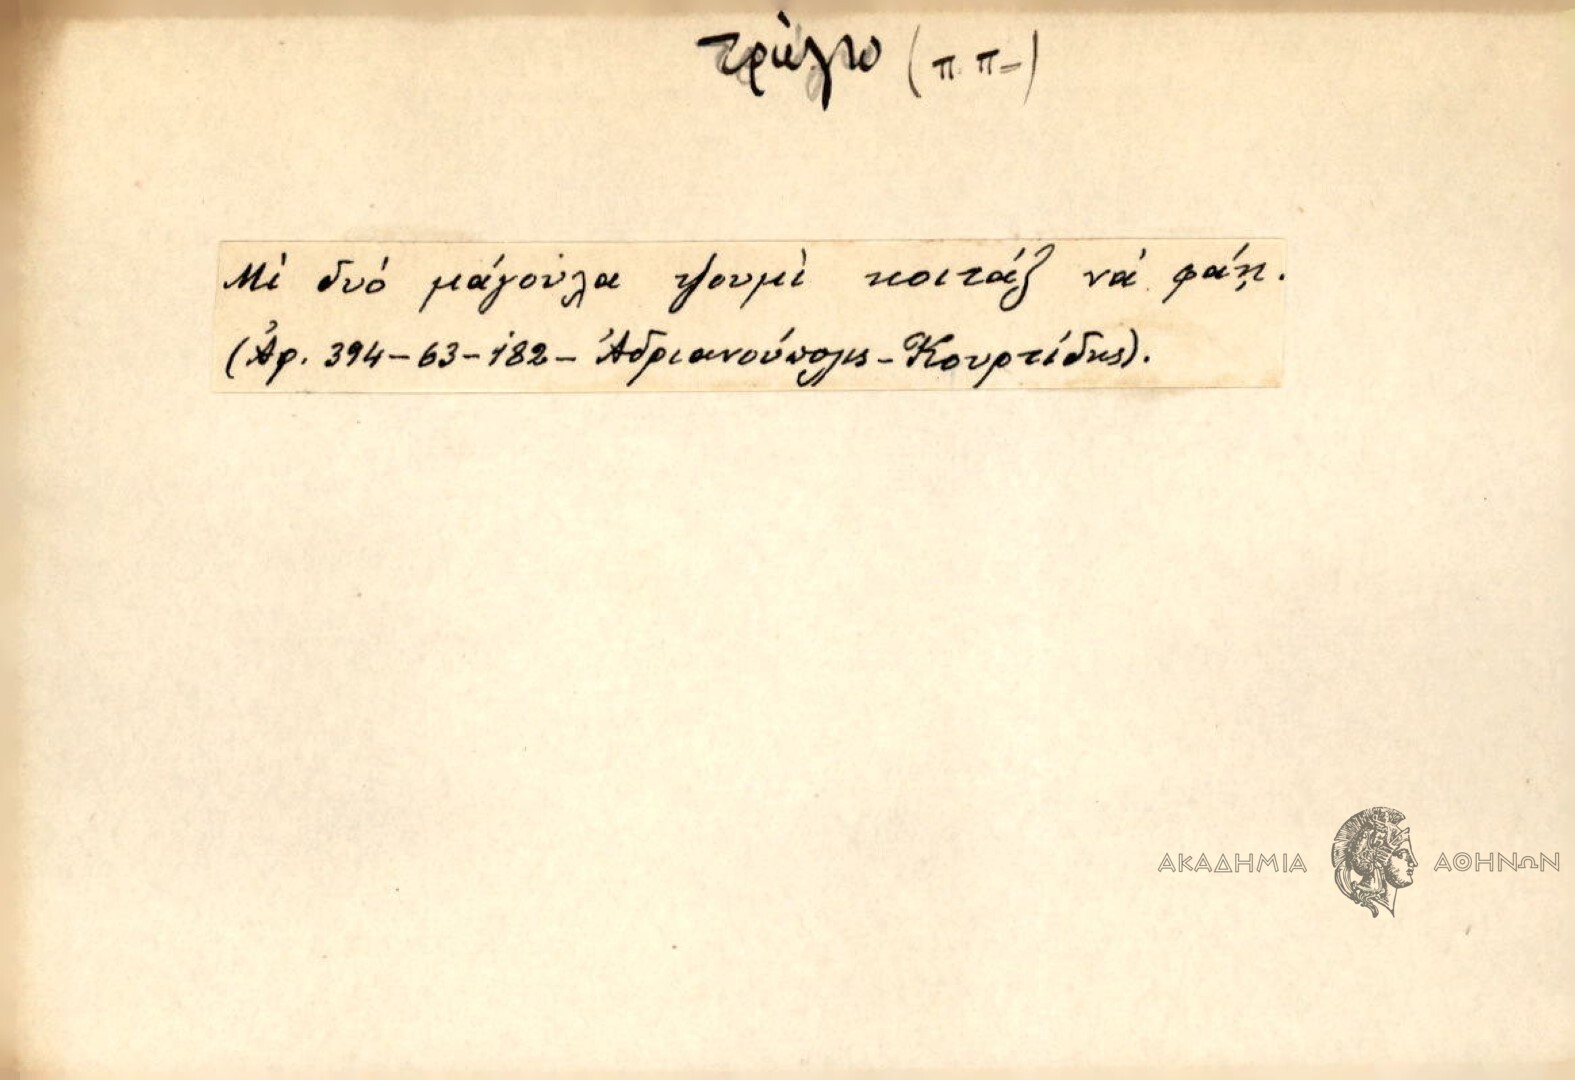 τρώγω (π π-)
Μὶ δυό μάγουλα ψουμὶ κοιτάζ νά φάῃ.
(Ἀρ. 394-63-182- Ἀδριανούπολις-Κουρτίδης).
ΑΚΑΔΗΜΙΑ ΑΘΗΝΩΝ